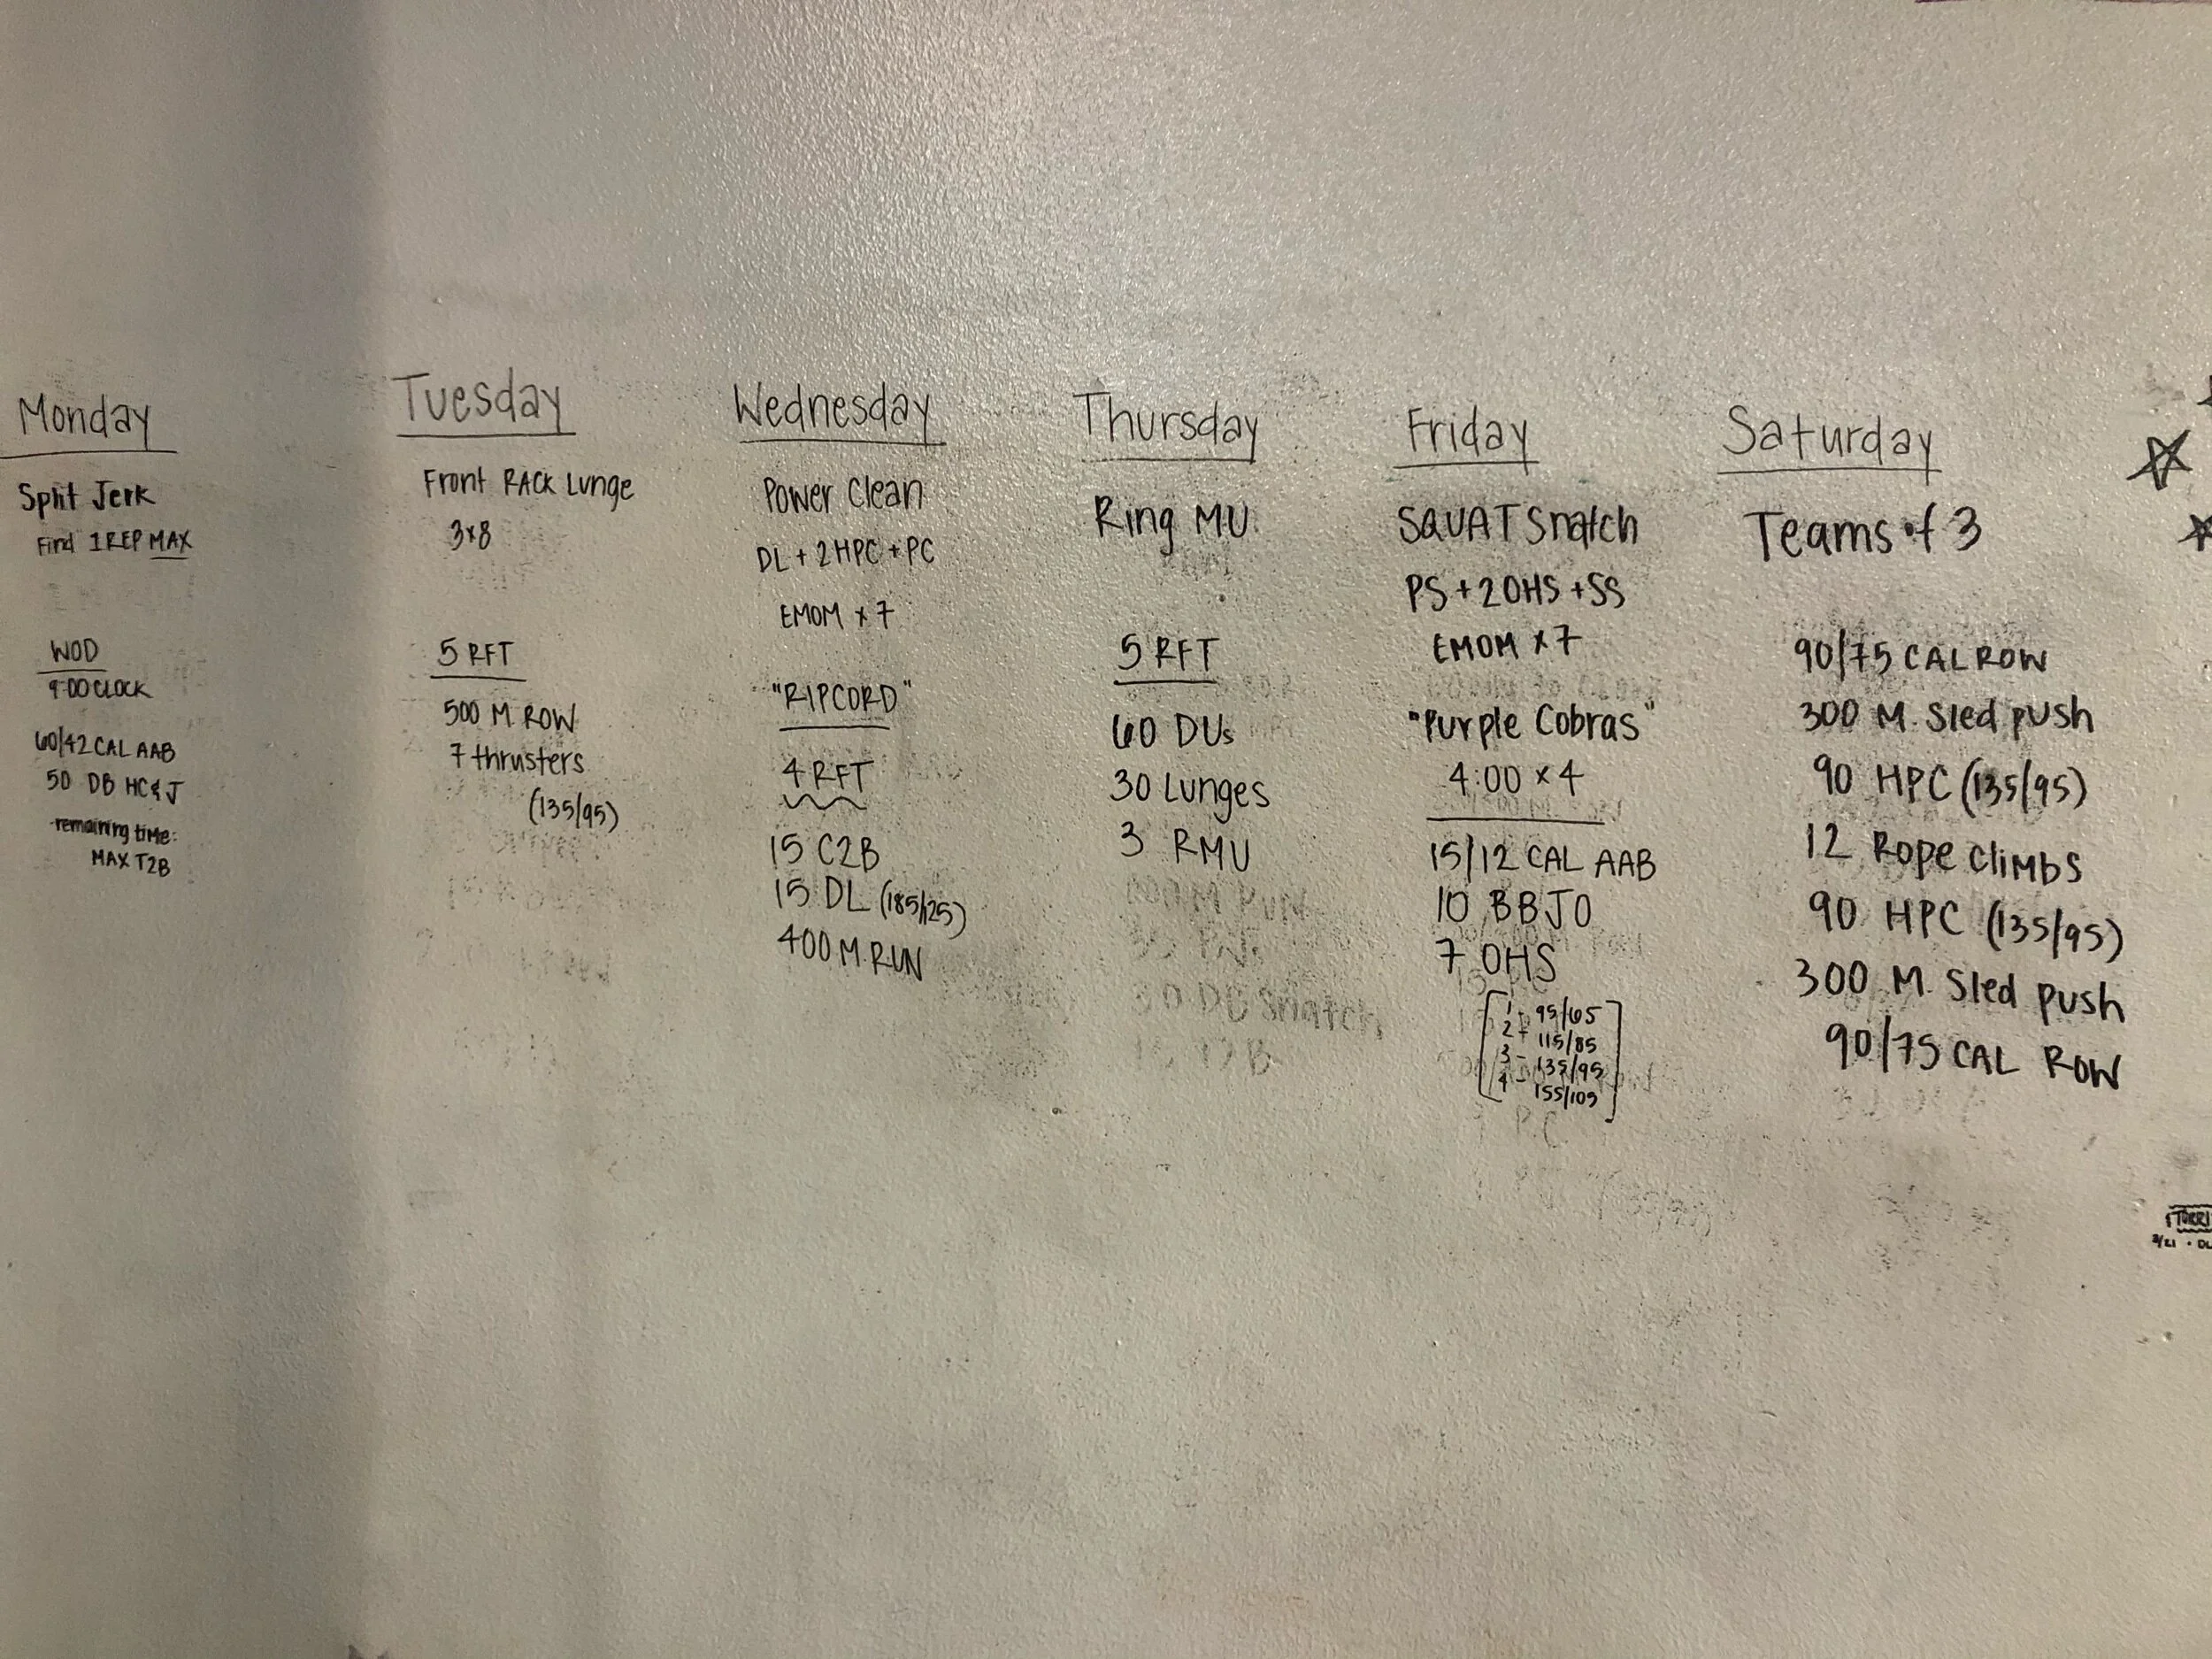 Monday
Split Jerk
Find 1 REP MAX
WOD
9:00 CLOCK
60/42 CAL AAB
50 DB HC&J
remaining time:
MAX T2B
Tuesday
Front RACK Lunge
3x8
5 RFT
500 M. ROW
7 thrusters
(135/95)
Wednesday
Power Clean
DL + 2HPC + PC
EMOM x 7
"RIPCORD"
4 RFT
15 C2B
15 DL (185/125)
400 M. RUN
Thursday
Ring MU
5 RFT
60 DUs
30 Lunges
3 RMU
Friday
SQUAT Snatch
PS + 2OHS + SS
EMOM x 7
"Purple Cobras"
4:00 x 4
15/12 CAL AAB
10 BBJO
7 OHS
1 - 95/65
2 - 115/85
3 - 135/95
4 - 155/105
Saturday
Teams of 3
90/75 CAL ROW
300 M. Sled push
90 HPC (135/95)
12 Rope Climbs
90 HPC (135/95)
300 M. Sled push
90/75 CAL ROW